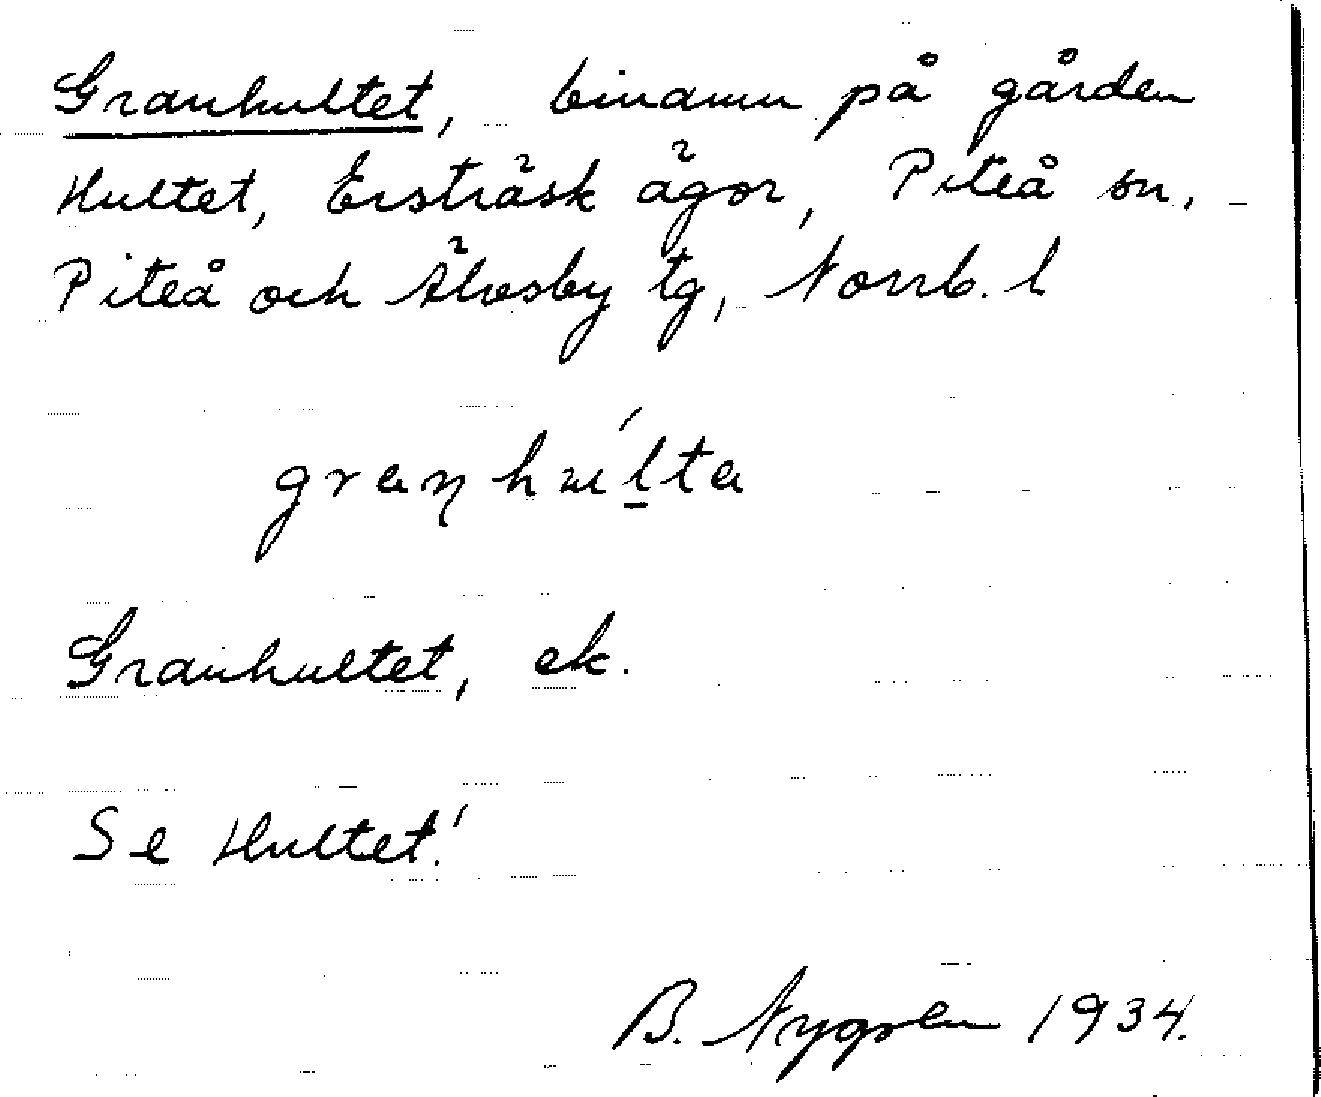 Granhultet, binamn på gården
Hultet, Ersträsk ägor, Piteå sn,
Piteå och Älvsby tg, Norrb. l
granhúlta
Granhultet, ek.
Se Hultet!
B. Nygren 1934.